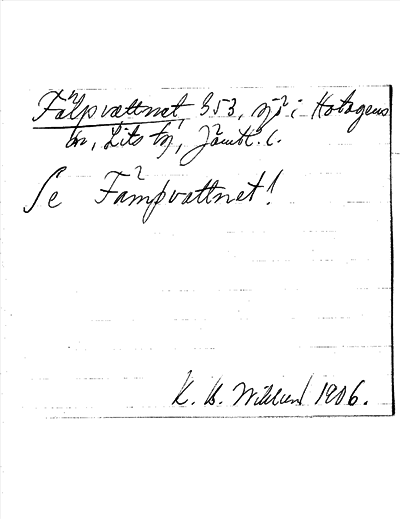 Fälpvattnet 353, sjö i Hotagens
sn, Lits tg, Jämtl. l.
Se Fämpvattnet!
K. B. Wiklund 1906.